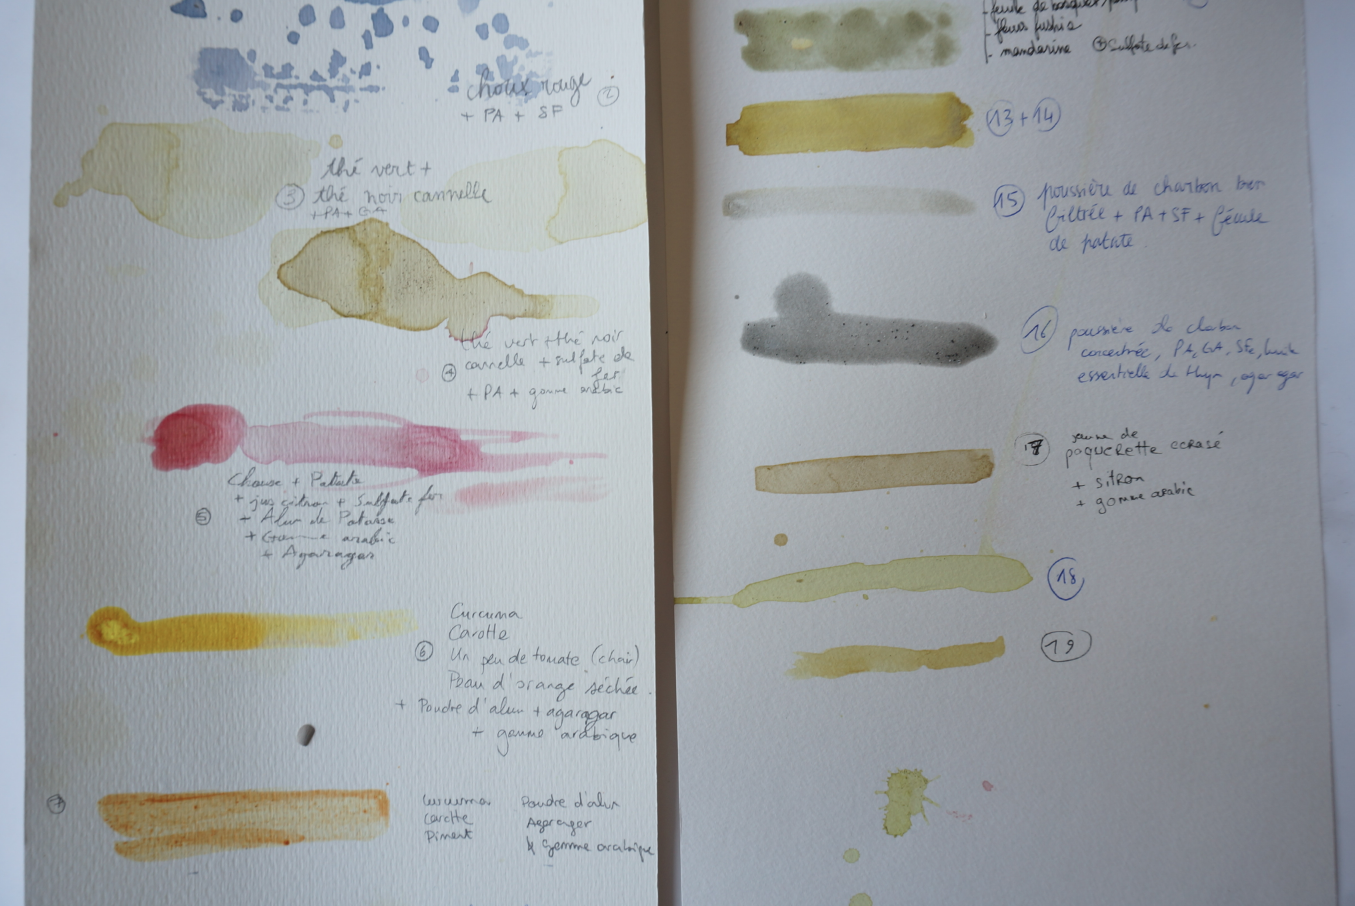 choux rouge
2
+ PA + SF
thé vert +
3 thé noir cannelle
+ PA + GA
thé vert + thé noir
cannelle + sulfate de
fer
4
+ PA + gomme arabic
+ jus citron + Sulfate fer
5
+ Alun de Potasse
+ Gomme arabic
+ Agaragar
Curcuma
Carotte
6 Un peu de tomate (chair)
Peau d'orange séchée.
+ Poudre d'alun + agaragar
+ gomme arabique
7
Curcuma Poudre d'alun
Carotte Agaragar
Piment gomme arabique
- fleurs fushia
- mandarine + Sulfate de fer.
13 + 14
15 poussière de charbon bien
filtrée + PA + SF + fécule
de patate.
16 poussière de
concentrée, PA, GA, SF, huile
essentielle de thym, agar agar
17 jaune de
paquerette ecrasé
+ sitron
+ gomme arabic
18
19